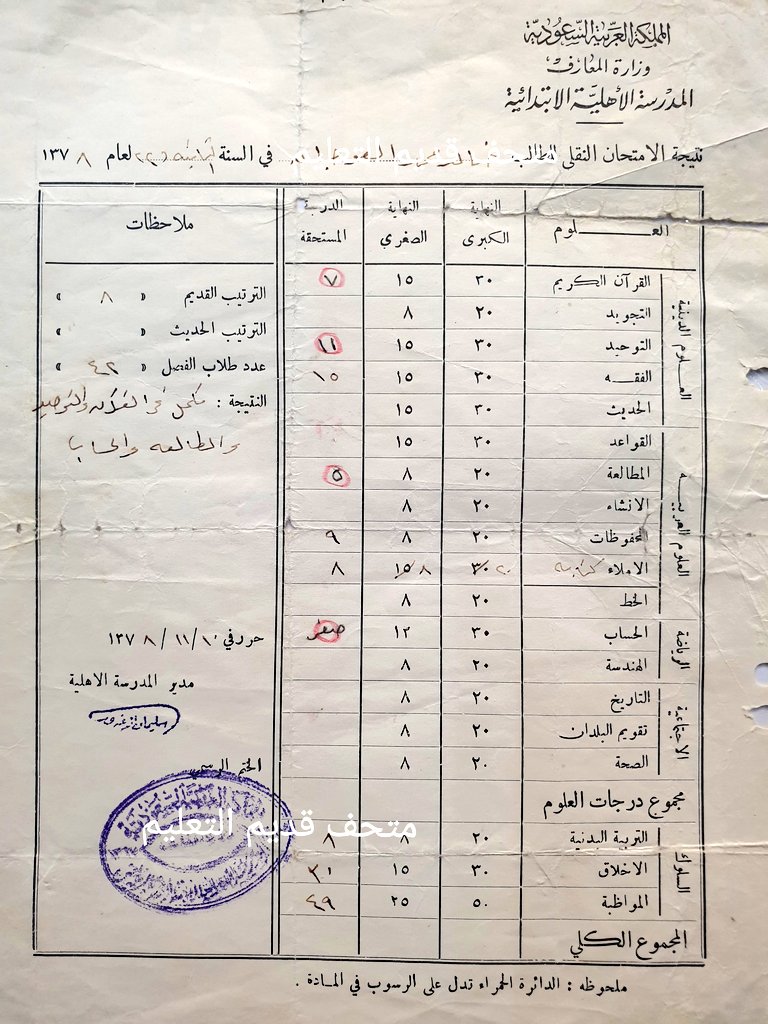 المملكة العربية السعودية
وزارة المعارف
المدرسة الأهلية الابتدائية
نتيجة الامتحان النقلي للطالب في السنة لعام ١٣٧٨
متحف قديم التعليم
العلوم النهاية الكبرى النهاية الصغرى الدرجة المستحقة ملاحظات
العلوم الدينية
القرآن الكريم ٣٠ ١٥ ٧
التجويد ٢٠ ٨
التوحيد ٣٠ ١٥ ١١
الفقه ٣٠ ١٥ ١٥
الحديث ٣٠ ١٥
العلوم العربية
القواعد ٣٠ ١٥
المطالعة ٢٠ ٨ ٥
الانشاء ٢٠ ٨
المحفوظات ٢٠ ٨ ٩
الاملاء كتابه ٣٠ ٢٠ ١٥ ٨ ٨
الخط ٢٠ ٨
الرياضة
الحساب ٣٠ ١٢ صفر
الهندسة ٢٠ ٨
الاجتماعية
التاريخ ٢٠ ٨
تقويم البلدان ٢٠ ٨
الصحة ٢٠ ٨
مجموع درجات العلوم
السلوك
التربية البدنية ٢٠ ٨ ٨
الاخلاق ٣٠ ١٥
المواظبة ٥٠ ٢٥ ٤٩
المجموع الكلي
الترتيب القديم « ٨ »
الترتيب الحديث « »
عدد طلاب الفصل « ٤٢ »
النتيجة : مكمل في القرآن والتوحيد
والمطالعه والحساب
حرر في ١٠/١١/١٣٧٨
مدير المدرسة الاهلية
الختم الرسمي
متحف قديم التعليم
ملحوظه : الدائرة الحمراء تدل على الرسوب في المادة .